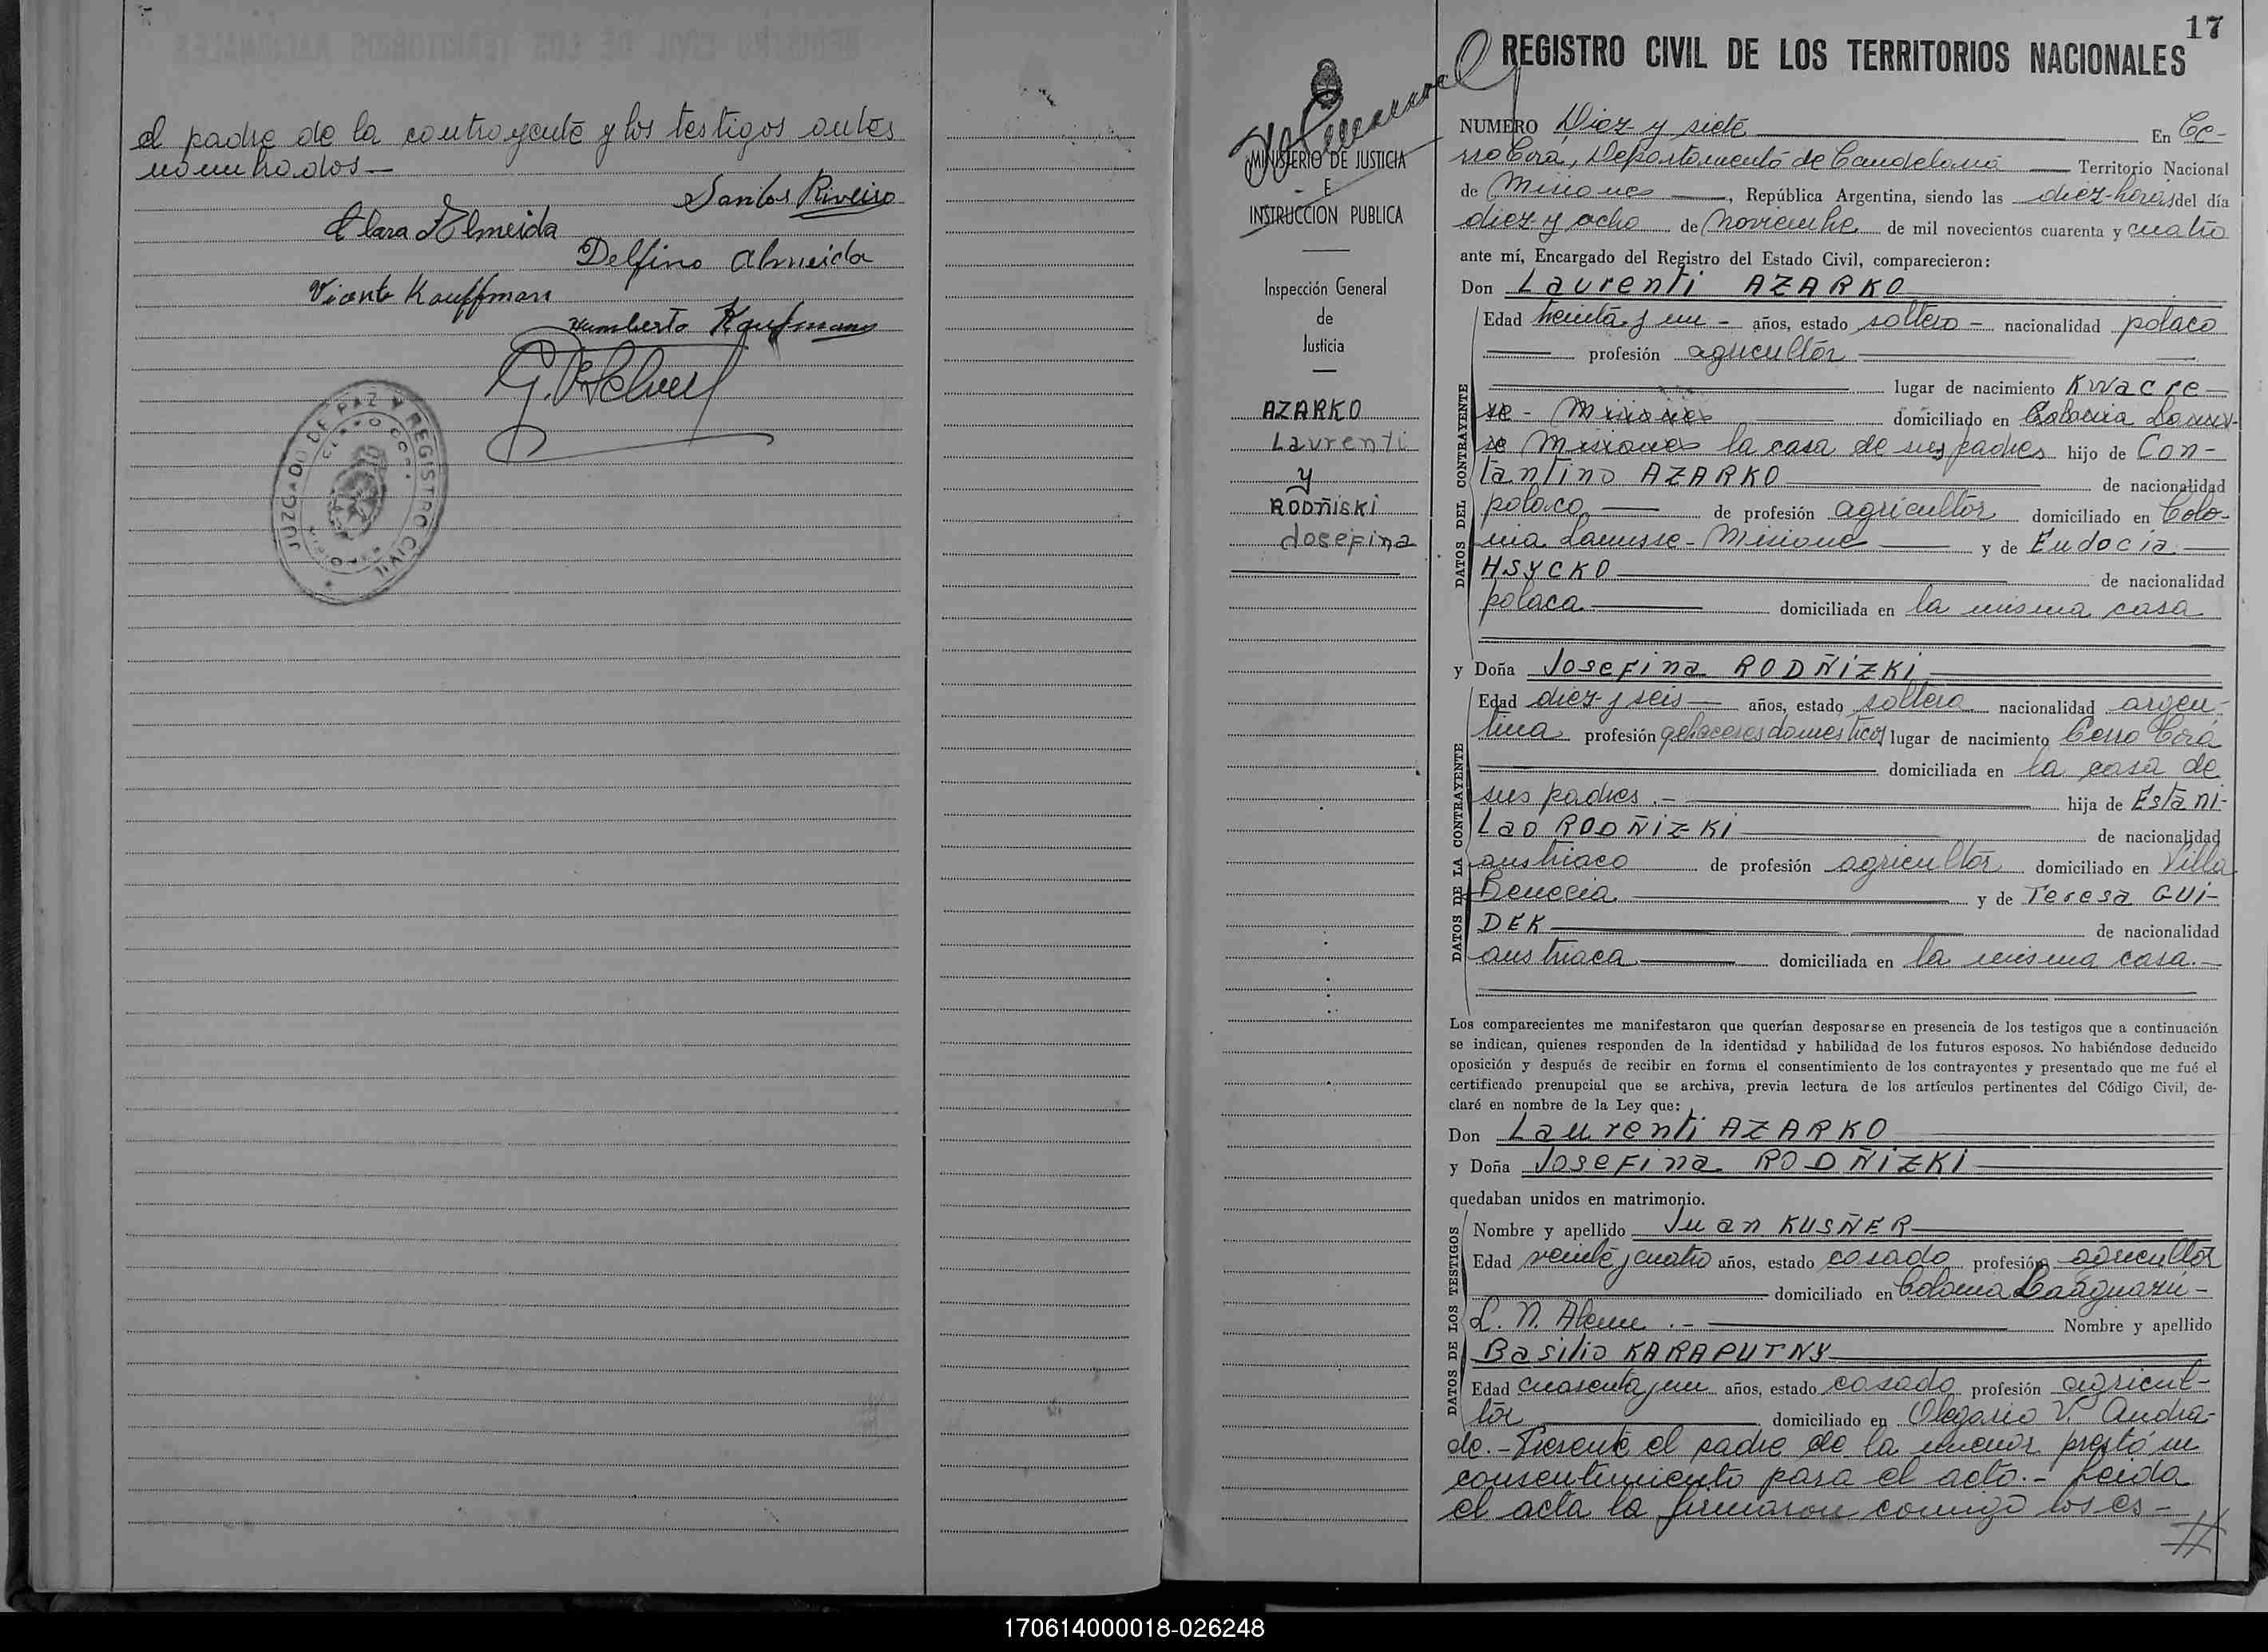 el padre de la contrayente y los testigos antes
nombrados—
Santos Riveiro
Clara Almeida
Delfino Almeida
Vicente Kauffman
Humberto Kaufmann
JUZGADO DE PAZ Y REGISTRO CIVIL
17
REGISTRO CIVIL DE LOS TERRITORIOS NACIONALES
MINISTERIO DE JUSTICIA
E
INSTRUCCION PUBLICA
Inspección General
de
Justicia
AZARKO
Laurenti
y
RODÑiSKi
Josefina
NUMERO Diez y siete En Ce-
rro Corá, Departamento de Candelaria Territorio Nacional
de Misiones, República Argentina, siendo las diez horas del día
diez y ocho de Noviembre de mil novecientos cuarenta y cuatro
ante mí, Encargado del Registro del Estado Civil, comparecieron:
Don Laurenti AZARKO
DATOS DEL CONTRAYENTE
Edad treinta y un años, estado soltero nacionalidad polaco
profesión agricultor
lugar de nacimiento Kwacre-
se - Misiones domiciliado en Colonia Lanus-
se Misiones la casa de sus padres hijo de Cons-
tantino AZARKO de nacionalidad
polaco de profesión agricultor domiciliado en Colo-
nia Lanusse - Misiones y de Eudocia
HSYCKO de nacionalidad
polaca domiciliada en la misma casa
y Doña Josefina RODÑiZKi
DATOS DE LA CONTRAYENTE
Edad diez y seis años, estado soltera nacionalidad argen-
tina profesión quehaceres domésticos lugar de nacimiento Cerro Corá
domiciliada en la casa de
sus padres.- hija de Estani-
lao RODÑiZKi de nacionalidad
austriaco de profesión agricultor domiciliado en Villa
Benecia y de Teresa GUi-
DEK de nacionalidad
austriaca domiciliada en la misma casa.-
Los comparecientes me manifestaron que querían desposarse en presencia de los testigos que a continuación
se indican, quienes responden de la identidad y habilidad de los futuros esposos. No habiéndose deducido
oposición y después de recibir en forma el consentimiento de los contrayentes y presentado que me fué el
certificado prenupcial que se archiva, previa lectura de los artículos pertinentes del Código Civil, de-
claré en nombre de la Ley que:
Don Laurenti AZARKO
y Doña Josefina RODÑiZKi
quedaban unidos en matrimonio.
DATOS DE LOS TESTIGOS
Nombre y apellido Juan KUSÑER
Edad veinte y cuatro años, estado casado profesión agricultor
domiciliado en Colonia Caaguazú -
L. N. Alem .- Nombre y apellido
Basilio KARAPUTNY
Edad cuarenta y un años, estado casado profesión agricul-
tor domiciliado en Olegario V. Andra-
de.- Presente el padre de la menor prestó su
consentimiento para el acto.- Leida
el acta la firmaron conmigo los es-
//
170614000018-026248